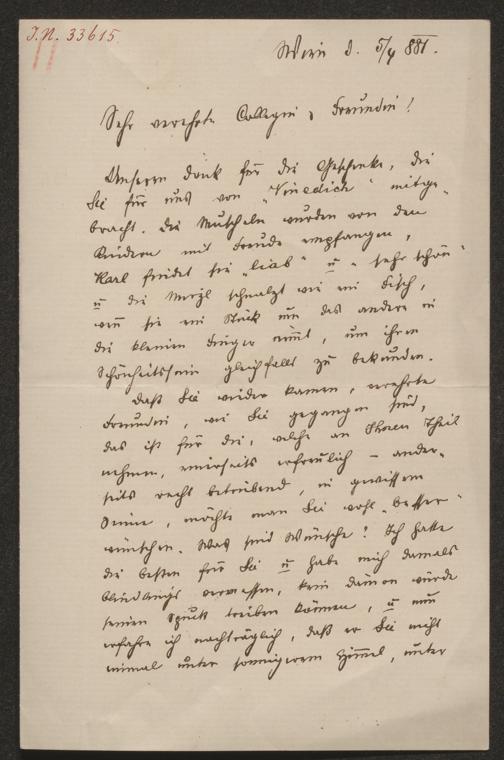 J.N. 33615
Wien d. 5/4 881.
Sehr verehrte Collegin, Freundin!
Unseren Dank für die Geschenke, die
Sie für uns von „Vinedich“ mitge-
bracht. Die Muscheln wurden von den
Kindern mit Freude empfangen,
Karl findet sie „liab“ u „sehr schön“
u die Mirzl schnalzt wie ein Fisch,
wenn sie ein Stück um das andere in
die kleinen Finger nimmt, um ihren
Schönheitssinn gleichfalls zu bekunden.
Daß Sie wieder kamen, verehrte
Freundin, wie Sie gegangen sind,
das ist für die, welche an Ihrem Theil
nehmen, einerseits erfreulich – ander-
seits recht betrübend, in gewissem
Sinne, möchte man Sie wohl „besser“
wünschen. Was sind Wünsche? Ich hatte
die besten für Sie u habe mich damals
blindlings vermessen, kein Dämon würde
seinen Spuk treiben können, u nun
erfahre ich nachträglich, daß er Sie nicht
einmal unter sonnigerem Himmel, unter